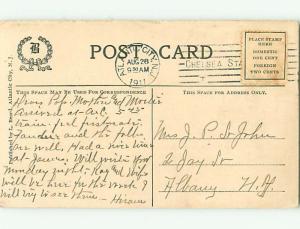 B
POST CARD
ATLANTIC CITY, N.J.
AUG 28
930 AM
1911
CHELSEA STA
PLACE STAMP
HERE
DOMESTIC
ONE CENT
FOREIGN
TWO CENTS
THIS SPACE MAY BE USED FOR CORRESPONDENCE
THIS SPACE FOR ADDRESS ONLY.
Published by L. Atlantic City, N.J.
Pop, Mother
arrived at 5:45
train
and the folks
are well. Had a nice time
at James. Will write
Monday night.
will be here for the week
Will try & see them - Hiram
Mrs J. P. St John
2 Jay St
Albany N.Y.